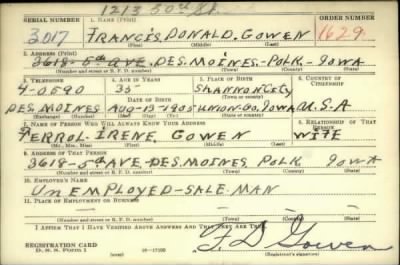 1213 50th St.
SERIAL NUMBER 1. NAME (Print) ORDER NUMBER
3017 FRANCIS. DONALD. GOWEN 1629
(First) (Middle) (Last)
2. ADDRESS (Print)
3618-5th AVE. DES. MOINES-POLK-IOWA
(Number and street or R. F. D. number) (Town) (County) (State)
3. TELEPHONE 4. AGE IN YEARS 5. PLACE OF BIRTH 6. COUNTRY OF CITIZENSHIP
4-0590 35 SHANNON CITY
DATE OF BIRTH
DES MOINES AUG-13-1905 UNION-CO, IOWA U.S.A
(Exchange) (Number) (Mo.) (Day) (Yr.) (State or country)
7. NAME OF PERSON WHO WILL ALWAYS KNOW YOUR ADDRESS 8. RELATIONSHIP OF THAT PERSON
FERROL-IRENE. GOWEN WIFE
(Mr., Mrs., Miss) (First) (Middle) (Last)
9. ADDRESS OF THAT PERSON
3618-5th AVE-DES. MOINES POLK IOWA
(Number and street or R. F. D. number) (Town) (County) (State)
10. EMPLOYER'S NAME
UNEMPLOYED-SALEMAN
11. PLACE OF EMPLOYMENT OR BUSINESS
(Number and street or R. F. D. number) (Town) (County) (State)
I AFFIRM THAT I HAVE VERIFIED ABOVE ANSWERS AND THAT THEY ARE TRUE.
F. D Gowen
REGISTRATION CARD
D. S. S. Form 1 (Registrant's signature)